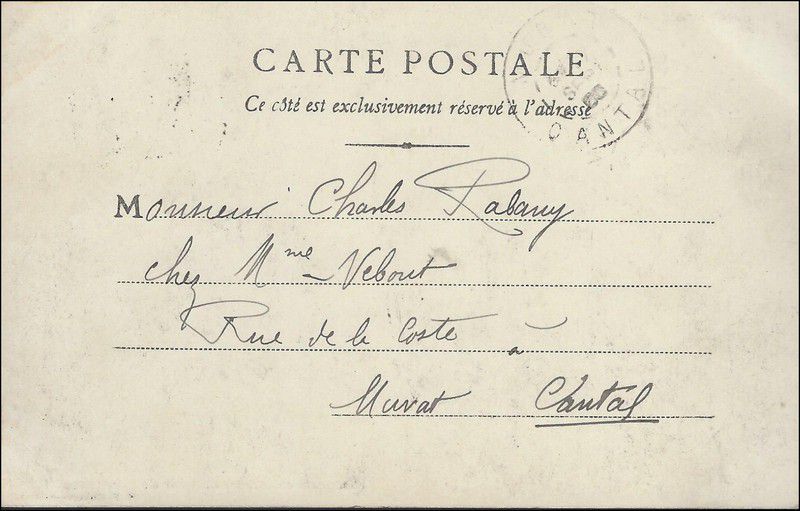 CARTE POSTALE
Ce côté est exclusivement réservé à l'adresse
CANTAL
Monsieur Charles Rabany
chez Mme Vebout
Rue de la Coste à
Murat Cantal